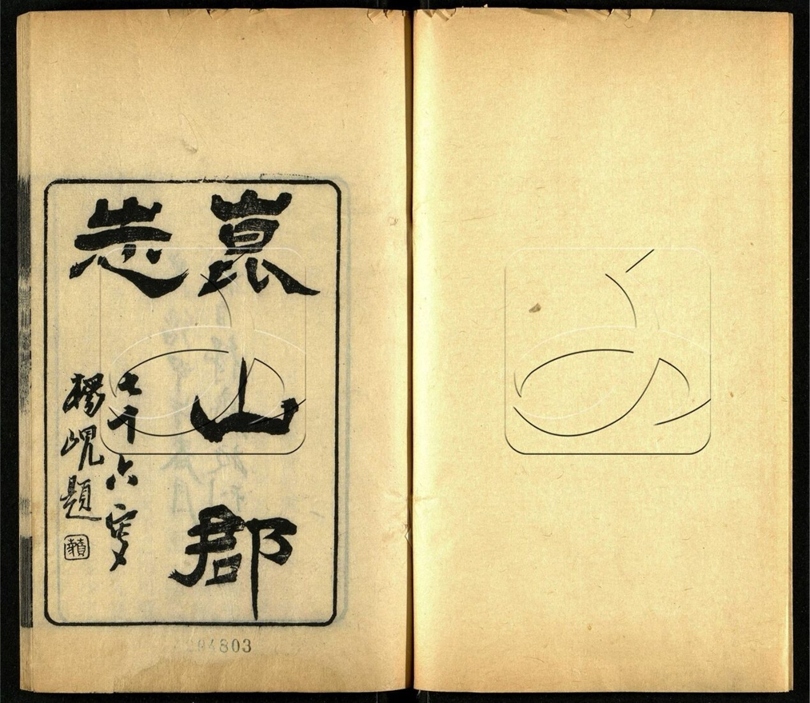 崑山郡
志
七十六叟
楊峴題
204803